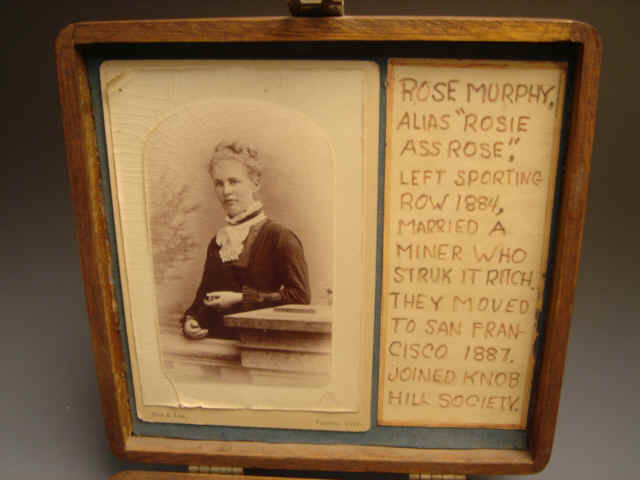 ROSE MURPHY,
ALIAS "ROSIE
ASS ROSE",
LEFT SPORTING
ROW 1884,
MARRIED A
MINER WHO
STRUK IT RITCH.
THEY MOVED
TO SAN FRAN-
CISCO 1887.
JOINED KNOB
HILL SOCIETY.